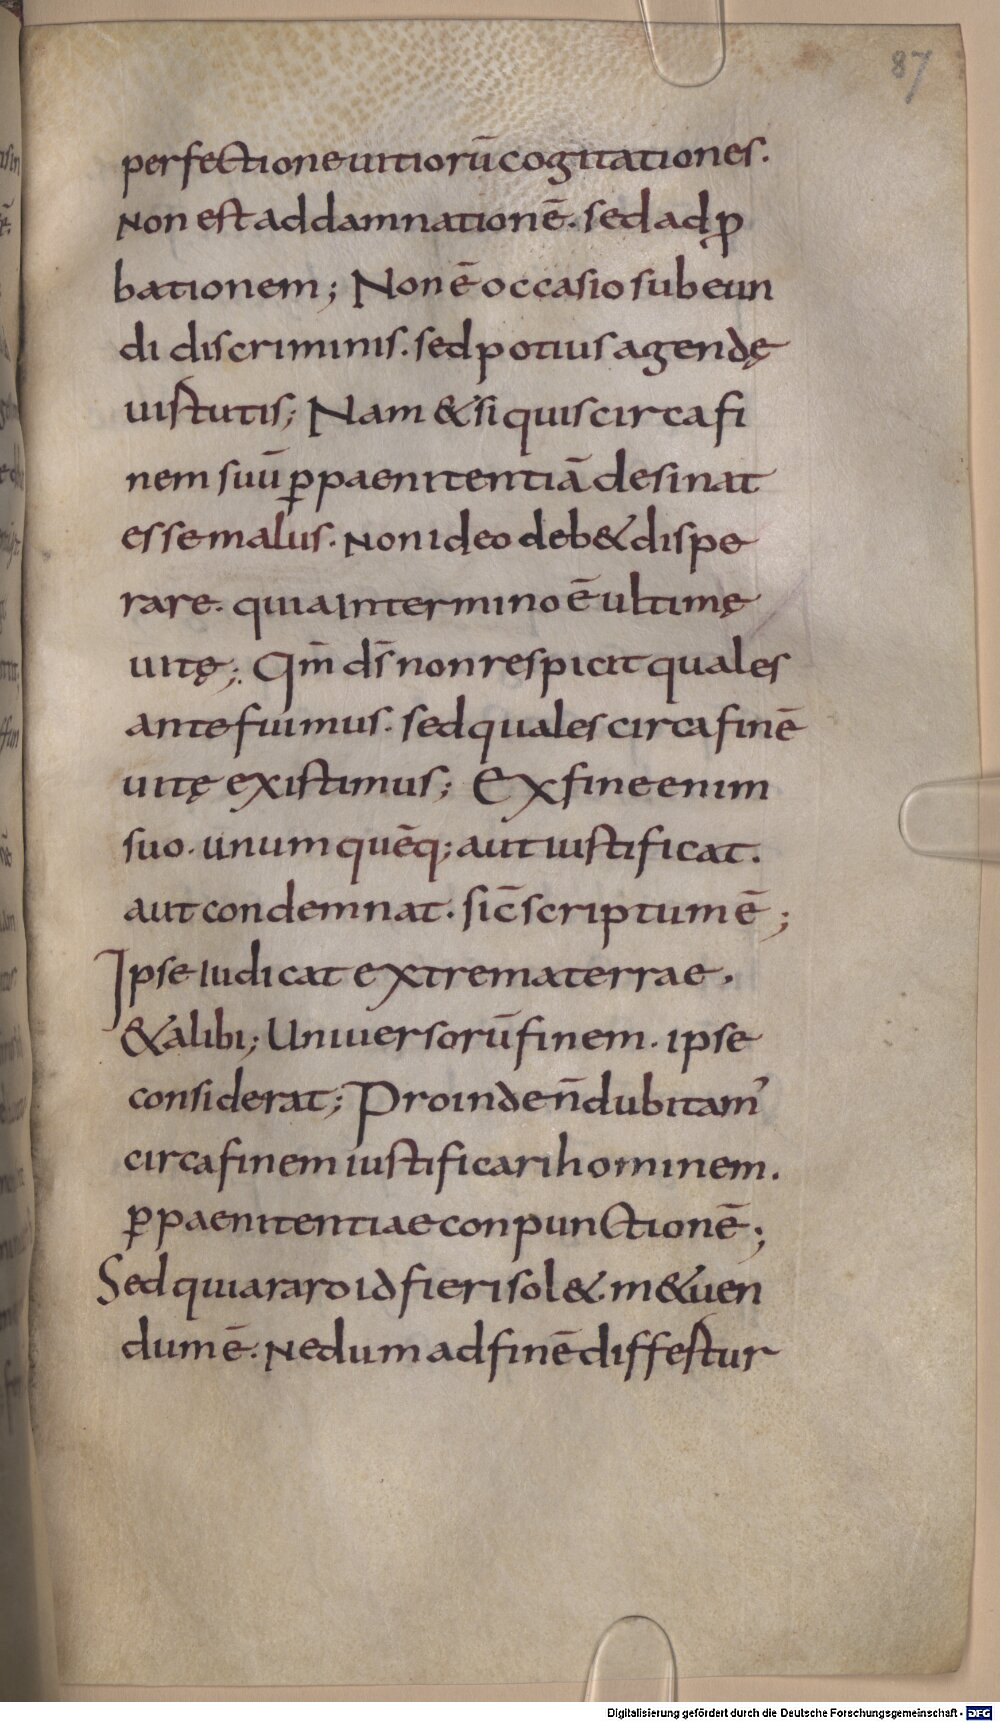 87
perfectione uitiorū cogitationes.
Non est ad damnationē. sed ad ꝓ
bationem; Non ē occasio subeun
di discriminis. sed potius agendę
uistutis; Nam & si quis circa fi
nem suū ꝑ paenitentiā desinat
esse malus. Non ideo deb& dispe
rare. quia in termino ē ultimę
uitę; Qm̄ ds̄ non respicit quales
ante fuimus. sed quales circa finē
uitę existimus; Ex fine enim
suo. unum quēq; aut iustificat.
aut condemnat. sic̄ scriptum ē;
Ipse iudicat extrema terrae.
& alibi; Uniuersorū finem. ipse
considerat; Proinde n̄ dubitam᾽
circa finem iustificari hominem.
ꝑ paenitentiae conpunctionē;
Sed quia raro id fieri sol&. m&uen
dum ē. Ne dum ad finē diffestur
Digitalisierung gefördert durch die Deutsche Forschungsgemeinschaft - DFG